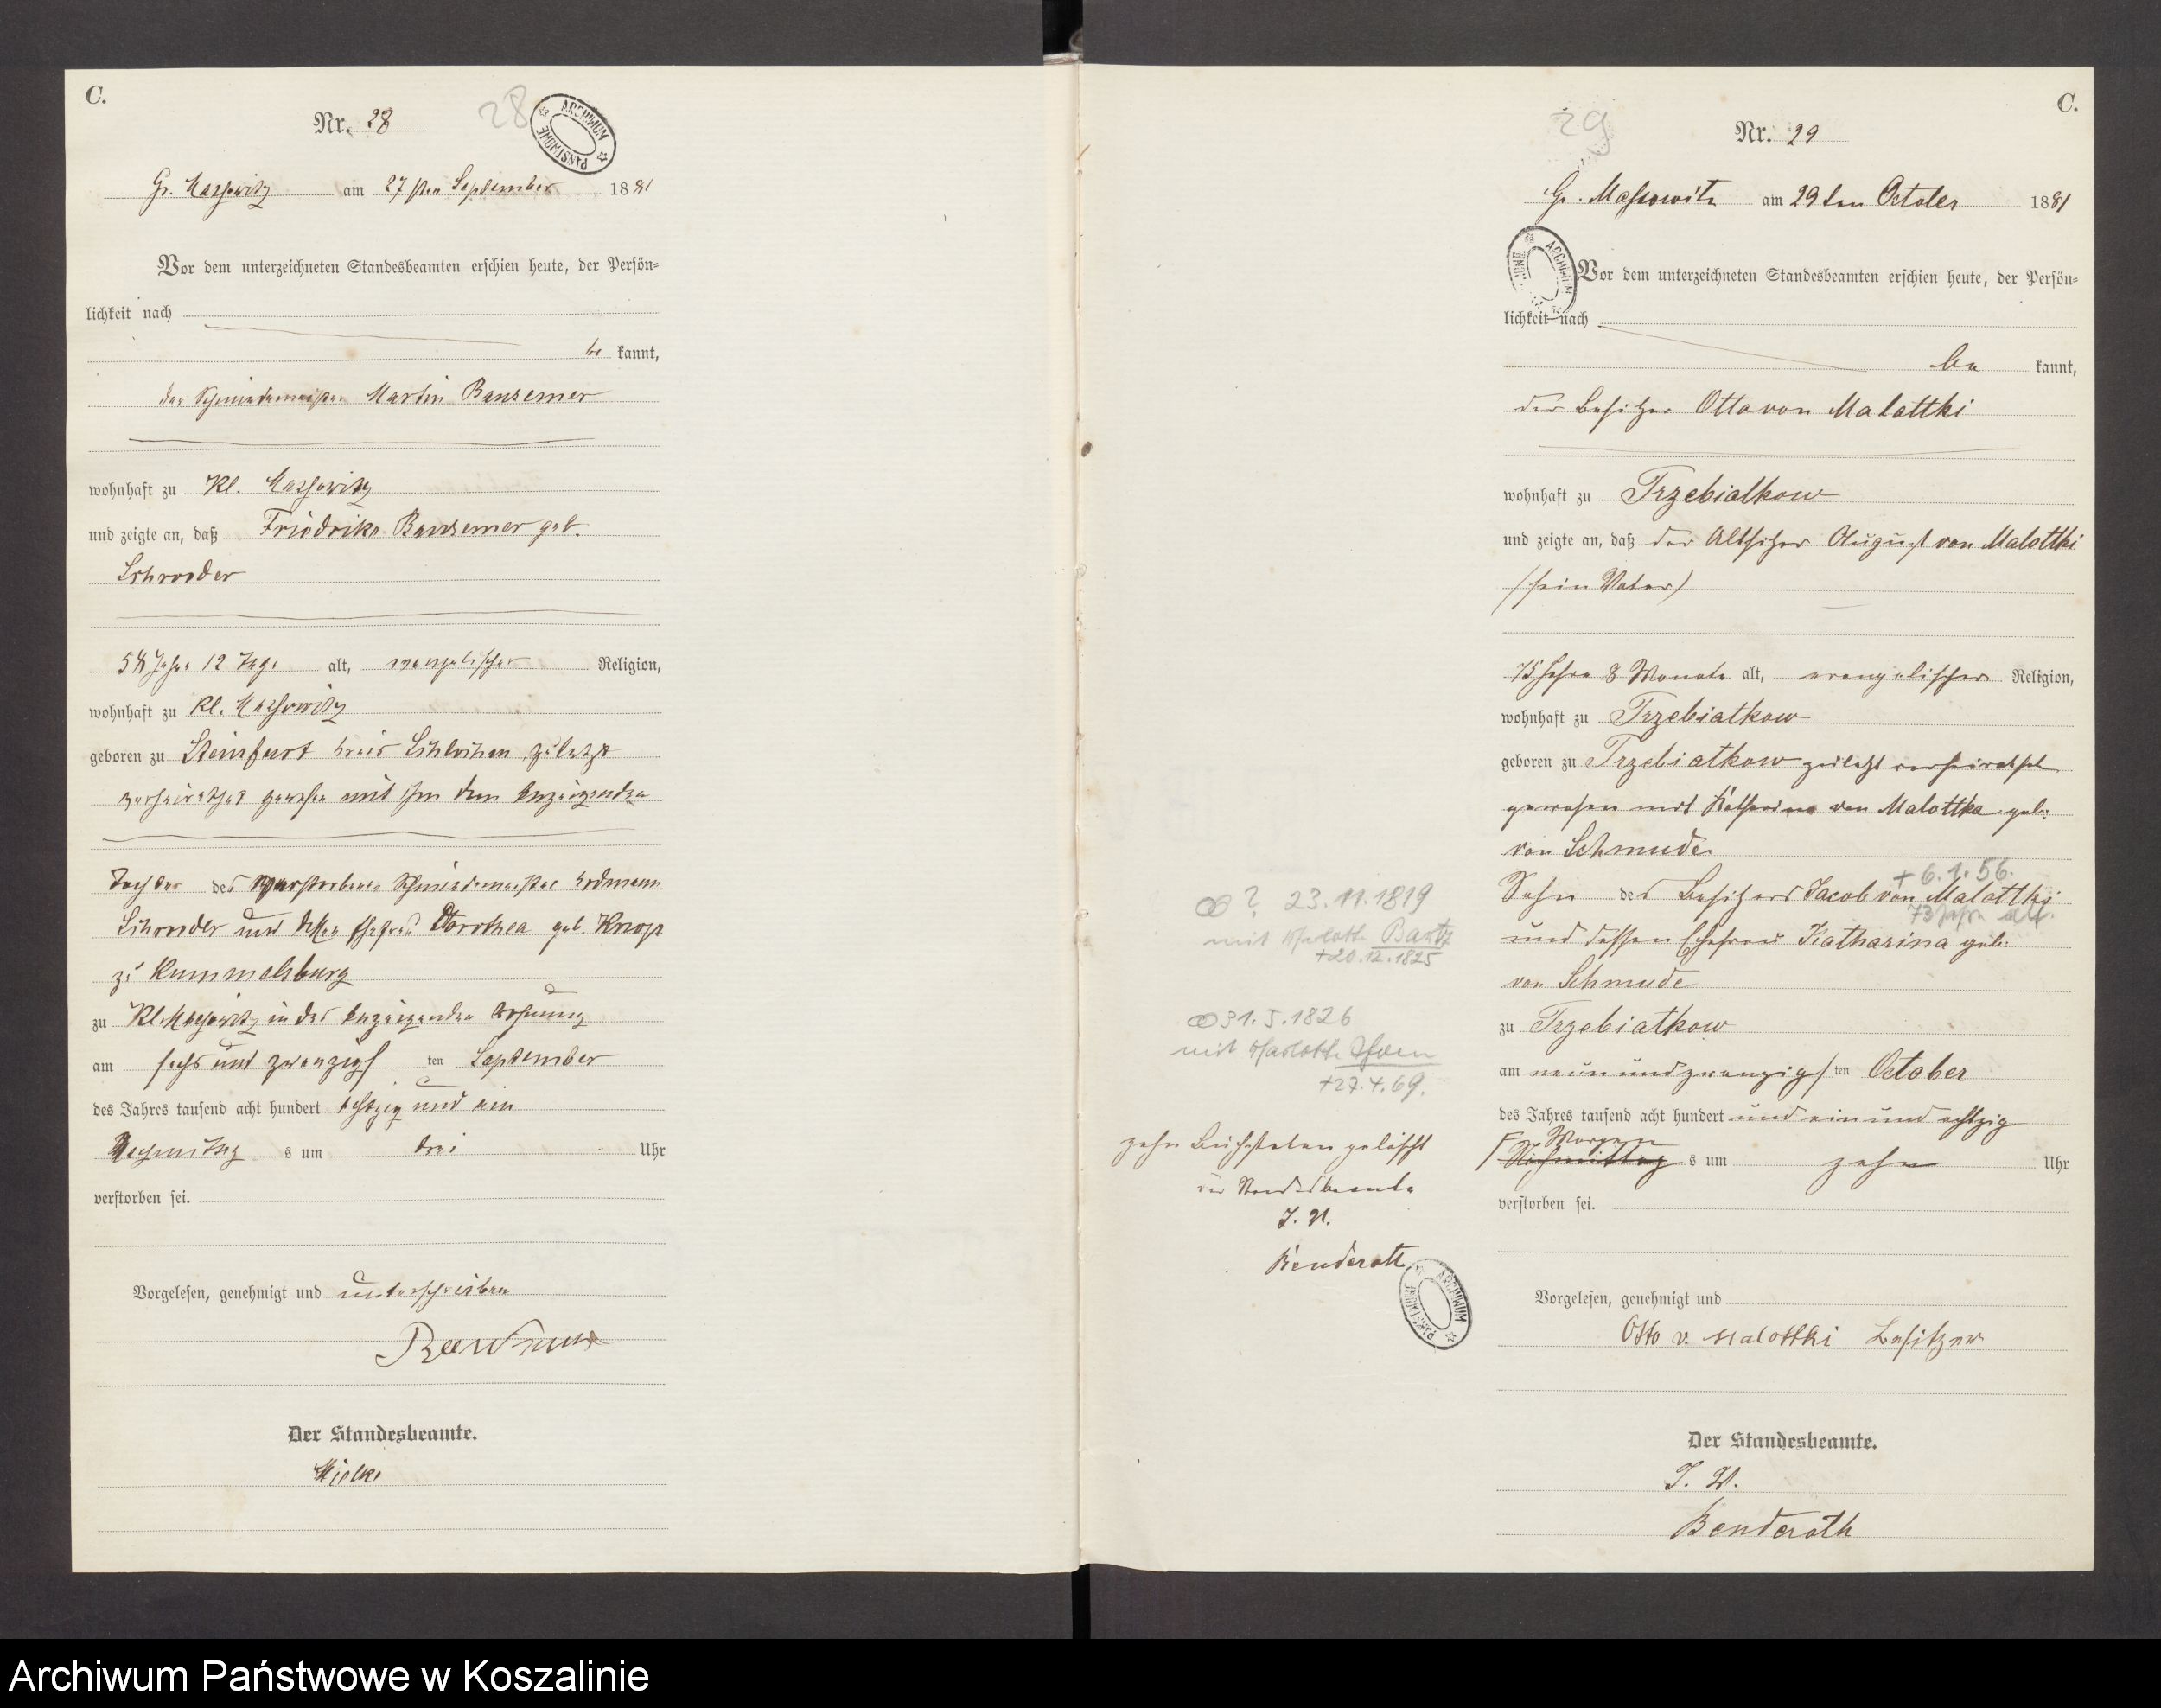 C.
Nr. 28
28
ARCHIWUM PAŃSTWOWE
Gr. Massowitz am 27sten September 1881
Vor dem unterzeichneten Standesbeamten erschien heute, der Persön-
lichkeit nach
be kannt,
der Schmiedemeister Martin Banzemer
wohnhaft zu Kl. Massowitz
und zeigte an, daß Friedrike Banzemer geb.
Schroeder
Jahre 12 Tage alt, evangelischer Religion,
wohnhaft zu Kl. Massowitz
geboren zu Steinfurt Kreis Schlochau zuletzt
verheirathet gewesen mit ihm dem Anzeigenden
Tochter des verstorbenen Schmiedemeister Erdmann
Schroeder und dessen Ehefrau Dorothea geb. Knop
zu Rummelsburg
zu Kl. Massowitz in des Anzeigenden Wohnung
am sechs und zwanzigsten September
des Jahres tausend acht hundert achtzig und ein
Nachmittag s um drei Uhr
verstorben sei.
Vorgelesen, genehmigt und unterschrieben
Der Standesbeamte.
Mielke
C.
29
Nr. 29
Gr. Massowitz am 29ten October 1881
ARCHIWUM PAŃSTWOWE
Vor dem unterzeichneten Standesbeamten erschien heute, der Persön-
lichkeit nach
be kannt,
der Besitzer Otto von Malottki
wohnhaft zu Trzebiatkow
und zeigte an, daß der Altsitzer August von Malottki
(sein Vater)
75 Jahre 8 Monate alt, evangelischer Religion,
wohnhaft zu Trzebiatkow
geboren zu Trzebiatkow zuletzt verheirathet
gewesen mit Katharina von Malottka geb:
von Schmude
+ 6.1.56.
Sohn des Besitzers Jacob von Malottki
73 Jahre alt.
und dessen Ehefrau Katharina geb:
von Schmude
zu Trzebiatkow
am neunundzwanzigsten October
des Jahres tausend acht hundert und ein und achtzig
Morgen
Nachmittag s um zehn Uhr
verstorben sei.
Vorgelesen, genehmigt und
Otto v. Malottki Besitzer
Der Standesbeamte.
J. V.
Benderoth
⚭ ? 23.11.1819
mit Charlotte Bartz
+20.12.1825
⚭ 31.5.1826
mit Charlotte
+27.4.69.
zehn Buchstaben gelöscht
der Standesbeamte
J. V.
Benderoth
ARCHIWUM PAŃSTWOWE
Archiwum Państwowe w Koszalinie